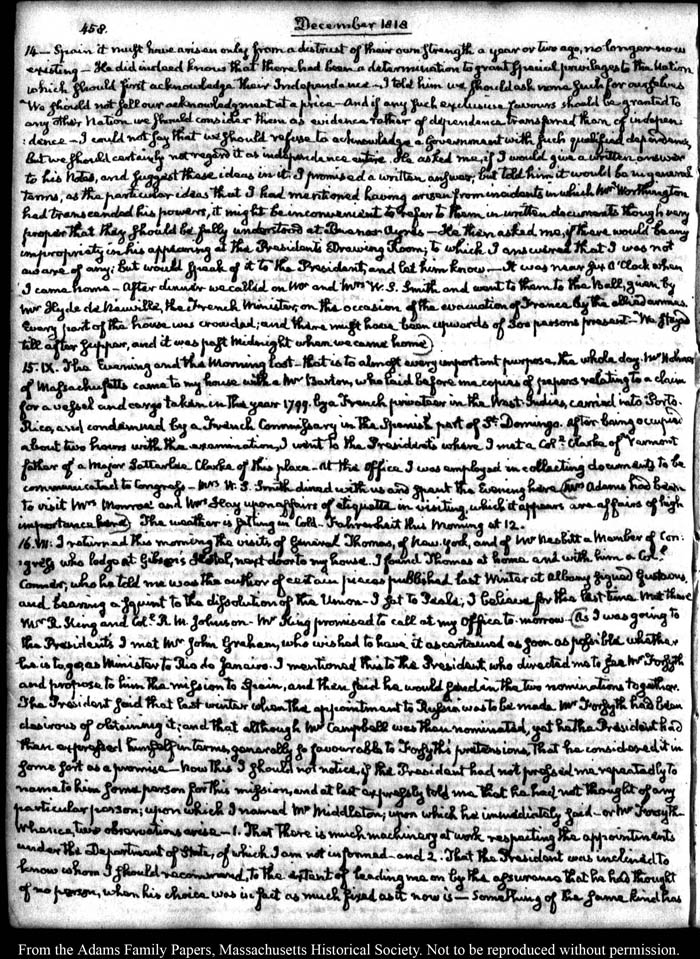 458.
December 1818
14 — Spain it must have arisen only from a distrust of their own strength a year or two ago, no longer now
existing — He did indeed know that there had been a determination to grant special privileges to the Nation
which should first acknowledge their Independence — I told him we should ask none such for ourselves
We should not sell our acknowledgment at a price — And if any such exclusive favours should be granted to
any other Nation we should consider them as evidence rather of dependence transferred than of indepen-
:dence — I could not say that we should refuse to acknowledge a Government with such qualified dependence,
but we should certainly not regard it as independence entire. He asked me, if I would give a written answer
to his Notes, and suggest these ideas in it. I promised a written answer, but told him it would be in general
terms, as the particular ideas that I had mentioned having arisen from incidents in which Mr Worthington
had transcended his powers, it might be inconvenient to refer to them in written documents though very
proper that they should be fully understood at Buenos Ayres — He then asked me, if there would be any
impropriety in his appearing at the Presidents Drawing Room; to which I answered that I was not
aware of any; but would speak of it to the President, and let him know. — It was near six O'Clock when
I came home — After dinner we called on Mr and Mrs W. S. Smith and went with them to the Ball, given by
Mr Hyde de Neuville, the French Minister, on the occasion of the evacuation of France by the allied armies.
Every part of the house was crowded; and there must have been upwards of 300 persons present — We stayed
till after supper, and it was past midnight when we came home)
15. IX. The Evening and the Morning lost — that is to almost every important purpose, the whole day. Mr Holmes
of Massachusetts came to my house with a Mr Baxton, who laid before me copies of papers relating to a claim
for a vessel and cargo taken in the year 1799. by a French privateer in the West-Indies, carried into Porto-
Rico, and condemned by a French Commissary in the Spanish part of St. Domingo. After being occupied
about two hours with the examination, I went to the Presidents where I met a Coll. Clarke of Vermont
father of a Major Satterlee Clarke of this place — At the office I was employed in collecting documents to be
communicated to Congress — Mrs W. S. Smith dined with us and spent the Evening here (Mrs Adams had been
to visit Mrs Monroe and Mrs Hay upon affairs of etiquette in visiting, which it appears are affairs of high
importance here) The weather is setting in Cold. Fahrenheit this Morning at 12.
16. VII: I returned this morning the visits of General Thomas, of New-York, and of Mr Nesbitt a Member of Con-
:gress who lodge at Gibson's Hotel, next door to my house. I found Thomas at home and with him a Coll.
Conner, who he told me was the author of certain pieces published last Winter at Albany signed Gustavus,
and bearing a squint to the dissolution of the Union — I sat to Peale, I believe for the last time. Met there
Mr R. King and Coll. R. M. Johnson — Mr King promised to call at my office to-morrow — (As I was going to
the Presidents I met Mr John Graham, who wished to have it ascertained as soon as possible whether
he is to go as Minister to Rio de Janeiro. I mentioned this to the President, who directed me to see Mr Forsyth
and propose to him the mission to Spain, and then said he would send in the two nominations together.
The President said that last winter when the appointment to Russia was to be made Mr Forsyth had been
desirous of obtaining it; and that although Mr Campbell was then nominated, yet he the President had
then expressed himself in terms, generally so favourable to Forsyth's pretensions, that he considered it in
some sort as a promise — Now this I should not notice, if the President had not pressed me repeatedly to
name to him some person for this mission, and at last expressly told me that he had not thought of any
particular person; upon which I named Mr Middleton; upon which he immediately said — or Mr Forsyth —
Whence two observations arise — 1. That there is much machinery at work respecting the appointments
under the Department of State, of which I am not informed — and 2. That the President was inclined to
know whom I should recommend, to the extent of leading me on by the assurance that he had thought
of no person, when his choice was in fact as much fixed as it now is — Something of the same kind has
From the Adams Family Papers, Massachusetts Historical Society. Not to be reproduced without permission.